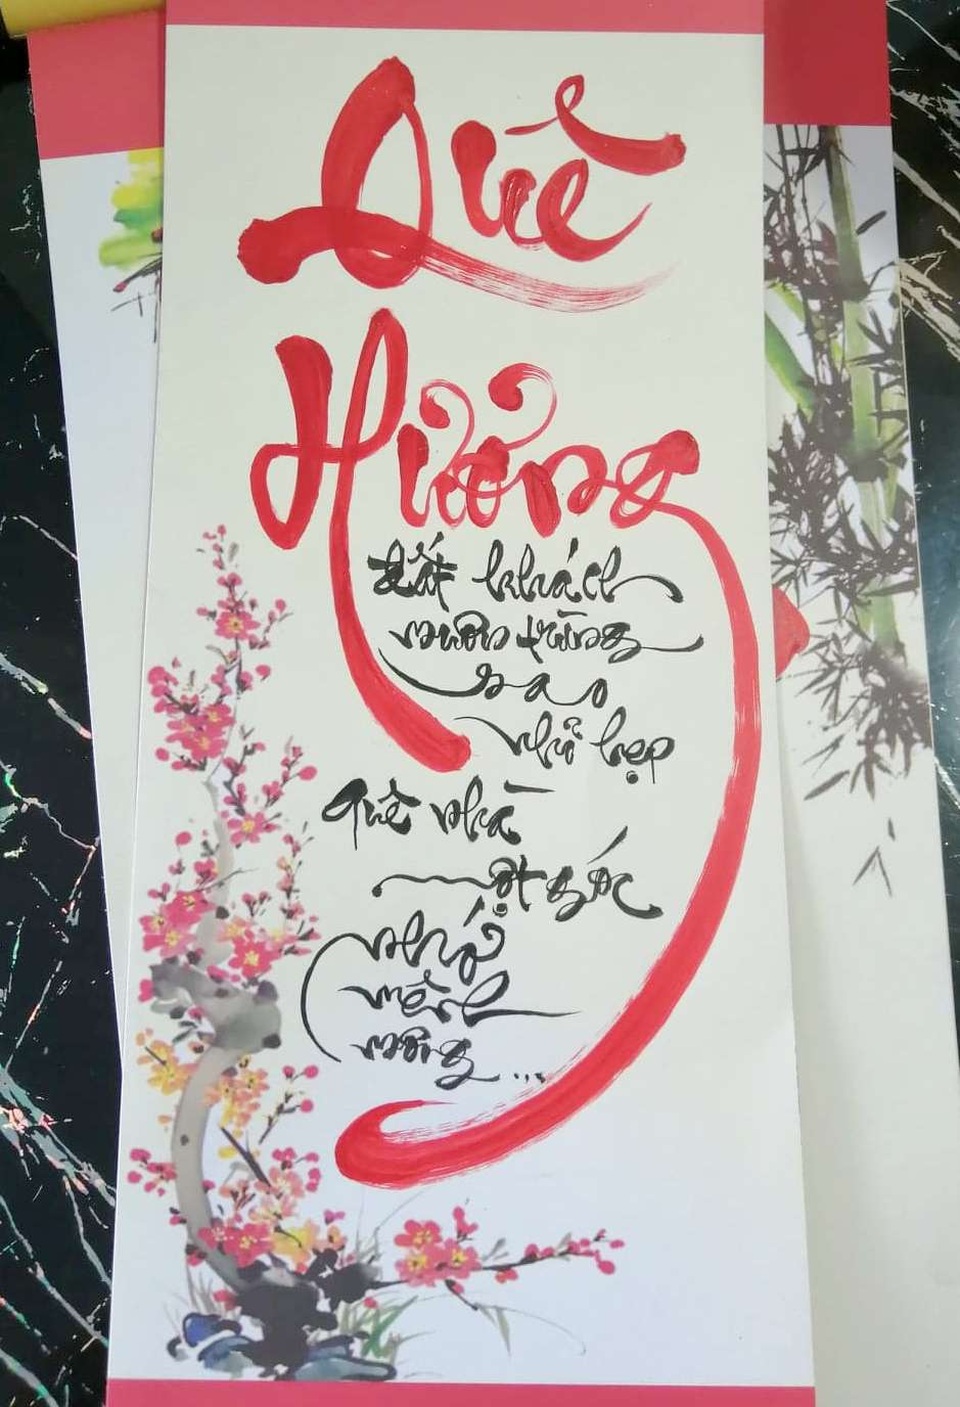 Quê
Hương
đất khách
muôn trùng
sao
nhỏ hẹp
quê nhà
một góc
nhớ
mênh
mông...